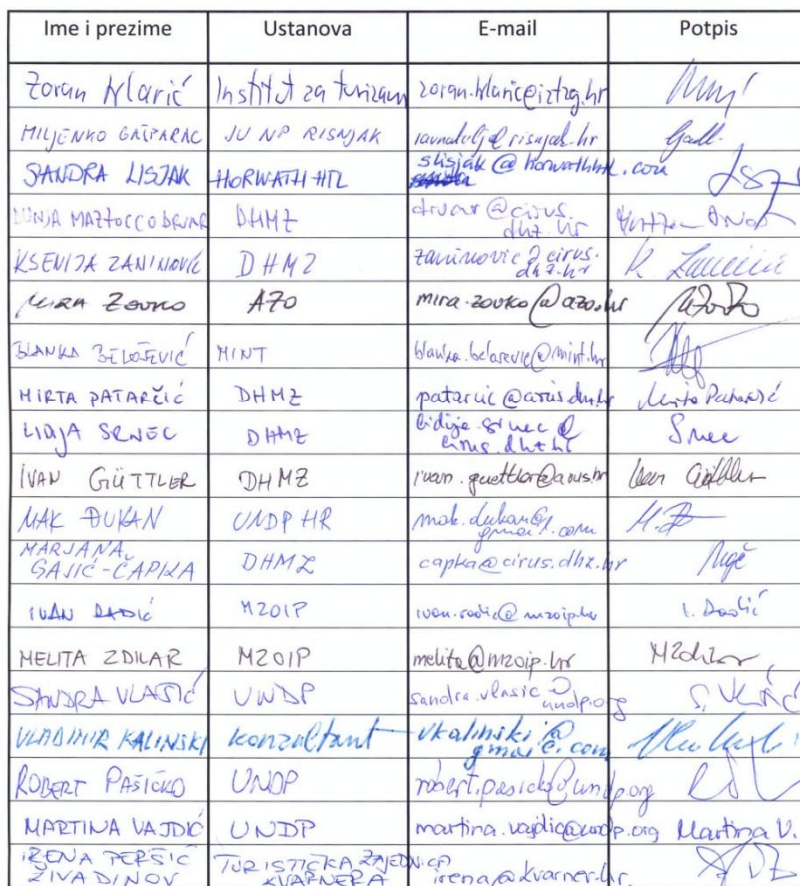 Ime i prezime Ustanova E-mail Potpis
Zoran Klarić Institut za turizam zoran.klaric@iztzg.hr
MILJENKO GAŠPARAC JU NP RISNJAK ravnatelj@risnjak.hr
SANDRA LISJAK HORWATH HTL slisjak@horwathhtl.com
DUNJA MAZZOCCO DRVAR DHMZ drvar@cirus.
dhz.hr
KSENIJA ZANINOVIĆ DHMZ zaninovic@cirus.
dhz.hr K. Zaninović
MIRA ZOVKO AZO mira.zovko@azo.hr
BLANKA BELOŠEVIĆ MINT
MIRTA PATARČIĆ DHMZ Mirta Patarčić
LIDIJA SRNEC DHMZ lidija.srnec@
cirus.dhz.hr Srnec
IVAN GÜTTLER DHMZ Ivan Güttler
MAK ĐUKAN UNDP HR mak.dukan@
gmail.com
MARJANA
GAJIĆ-ČAPKA DHMZ capka@cirus.dhz.hr
IVAN RADIĆ MZOIP ivan.radic@mzoip.hr I. Radić
MELITA ZDILAR MZOIP melita@mzoip.hr
SANDRA VLAŠIĆ UNDP sandra.vlasic@
undp.org S. Vlašić
VLADIMIR KALINSKI konzultant vkalinski@
gmail.com
ROBERT PAŠIČKO UNDP robert.pasicko@undp.org
MARTINA VAJDIĆ UNDP martina.vajdic@undp.org Martina V.
IRENA PERŠIĆ
ŽIVADINOV TURISTIČKA ZAJEDNICA
KVARNERA irena@kvarner.hr